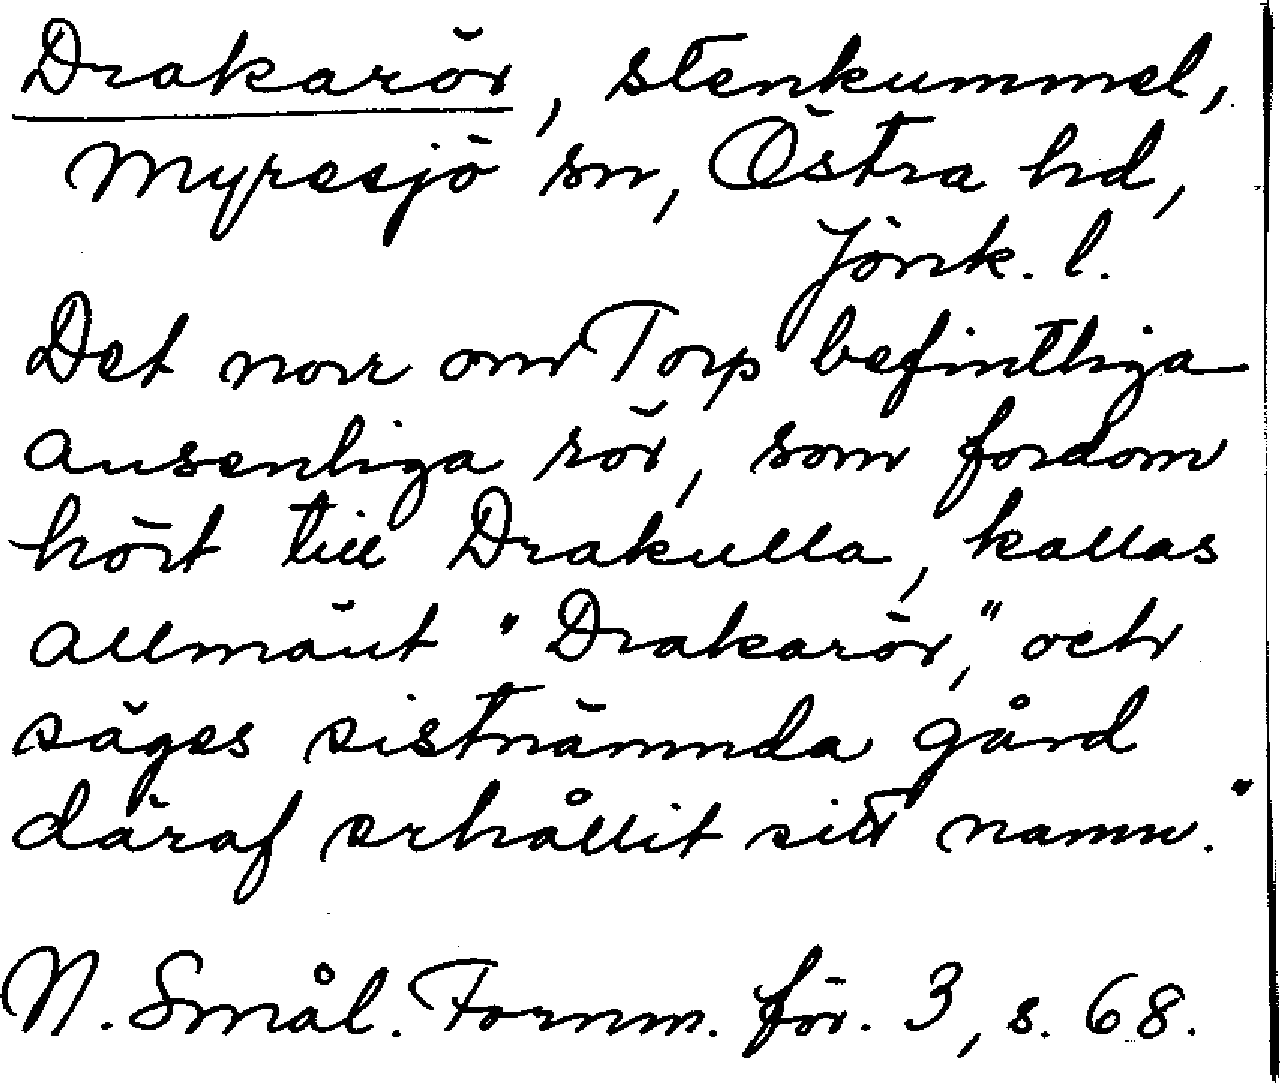 Drakarör, stenkummel,
Myresjö sn, Östra hd,
Jönk. l.
Det norr om Torp befintliga
ansenliga rör, som fordom
hört till Drakulla, kallas
allmänt "Drakarör," och
säges sistnämnda gård
däraf erhållit sitt namn."
N. Smål. Fornm. för. 3, s. 68.